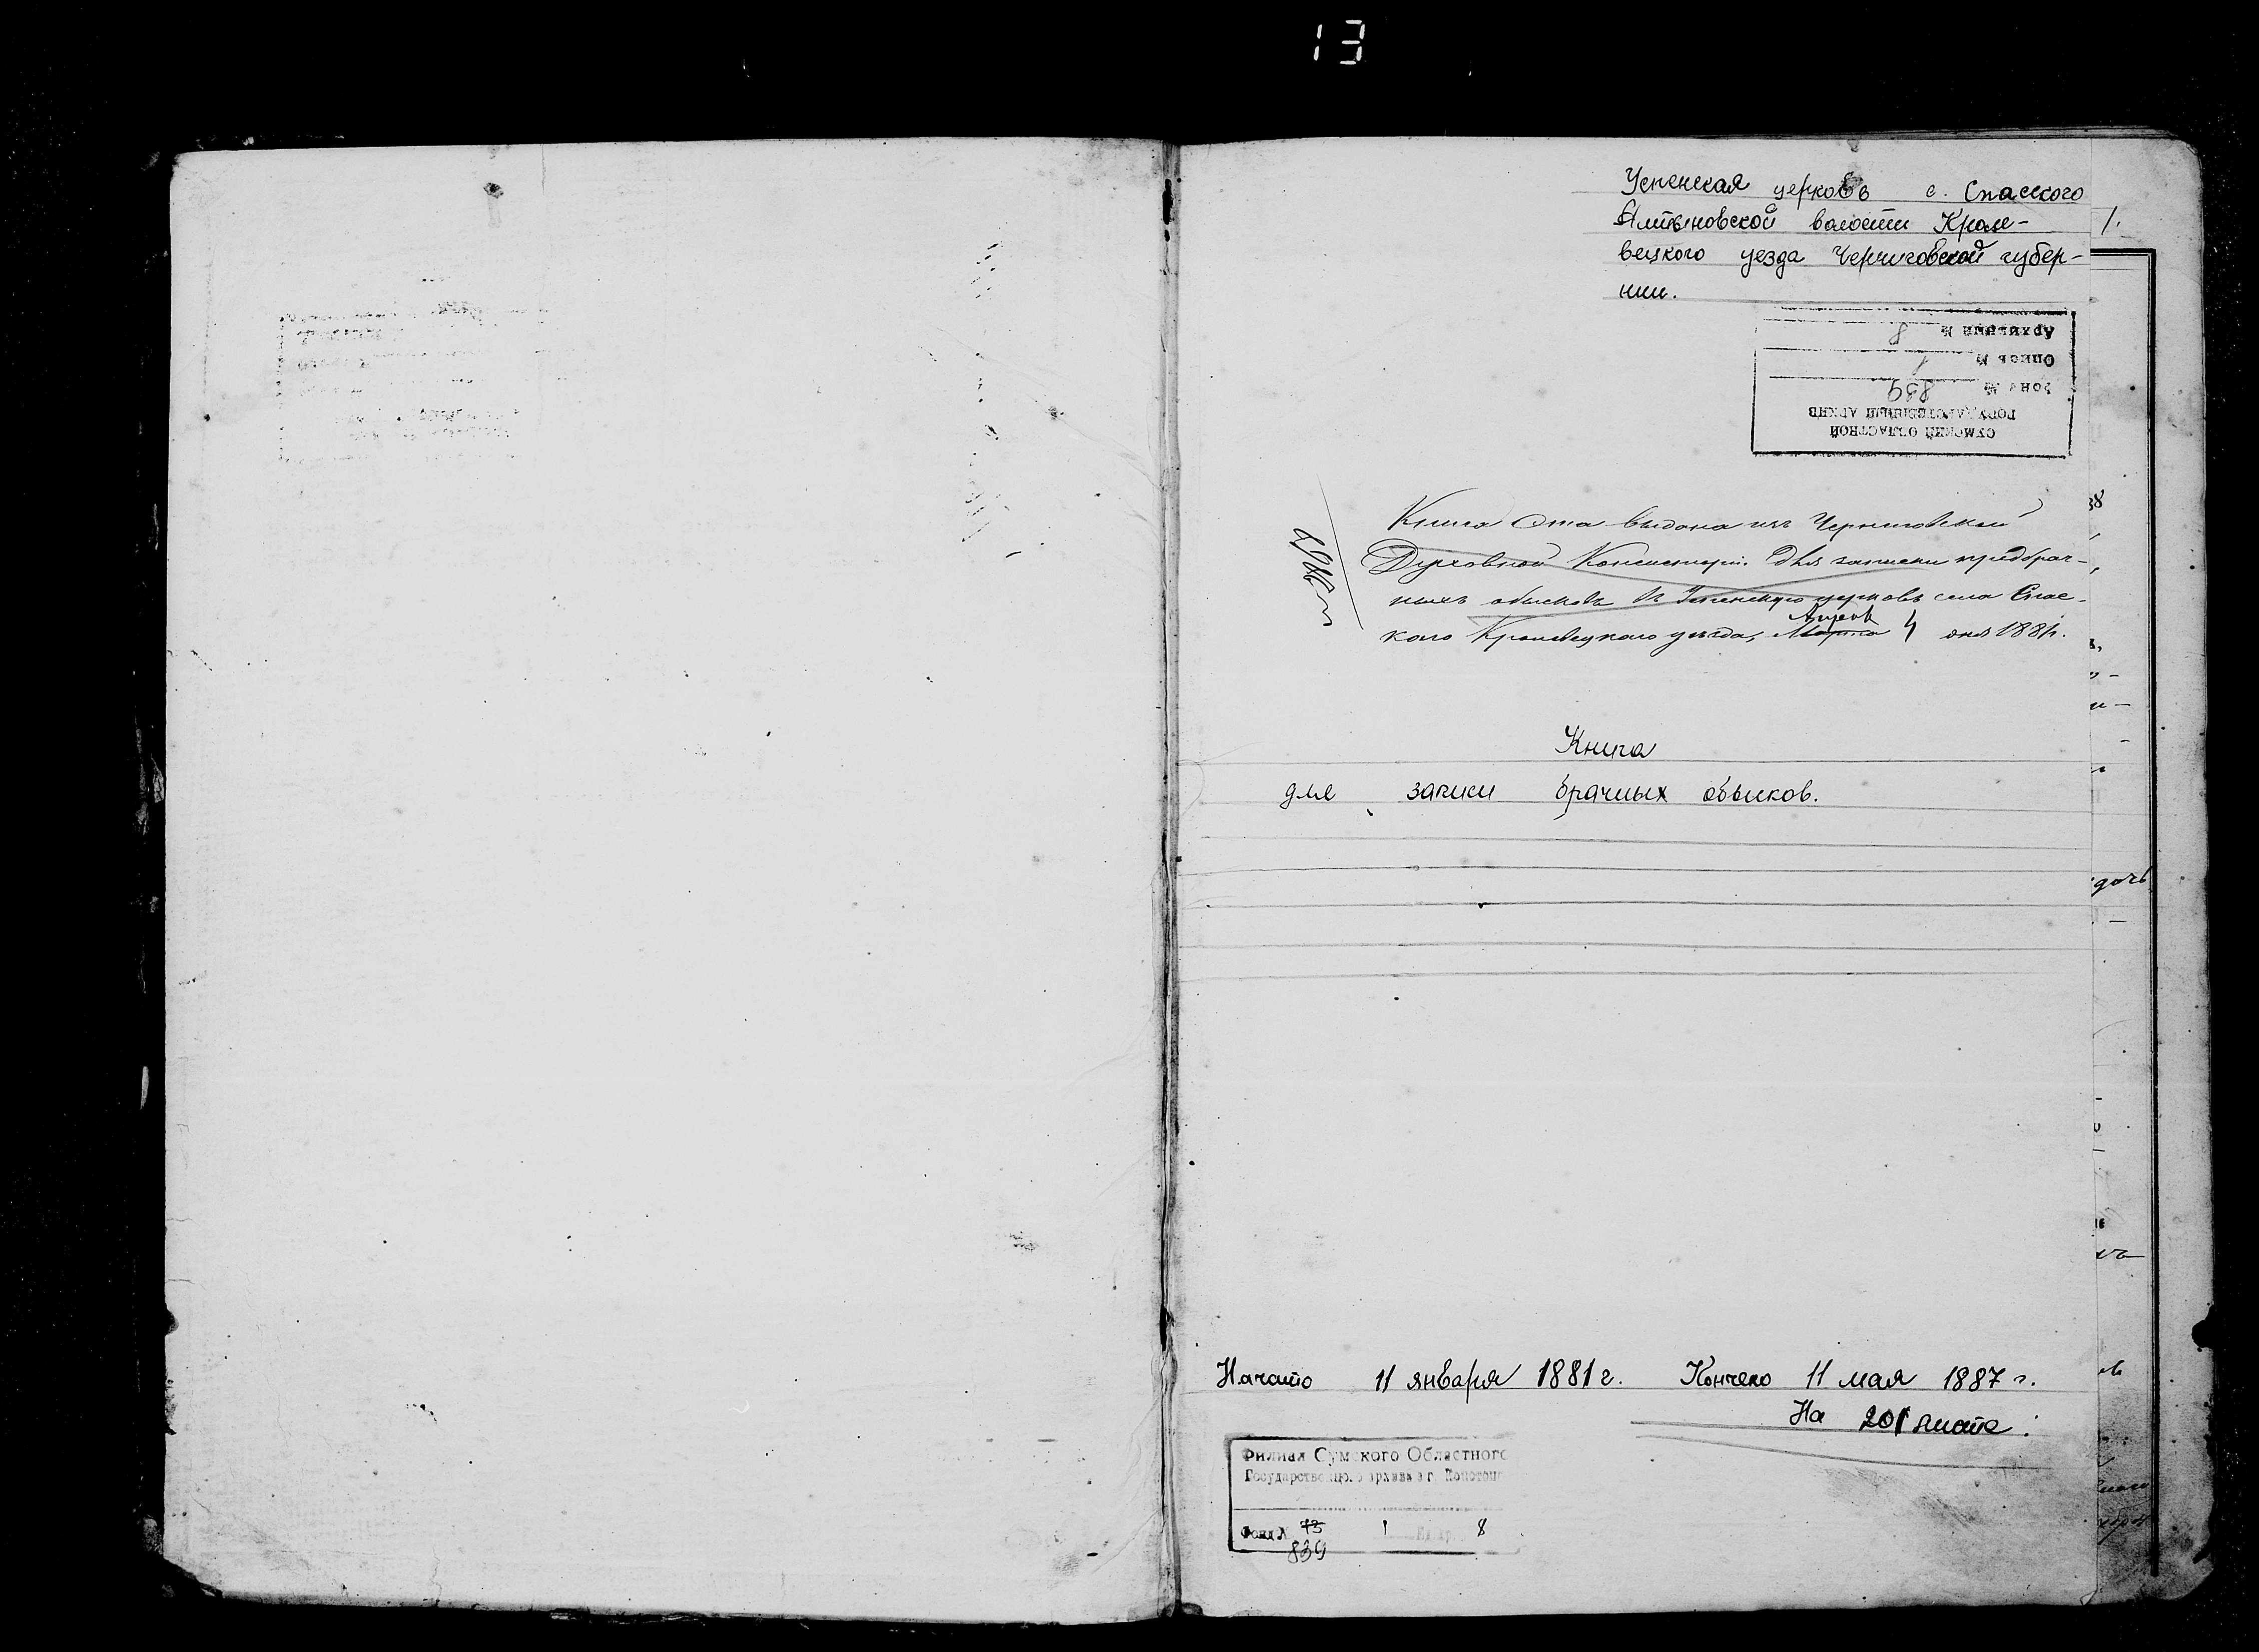 13
Успенская церковь с. Спасского
Алтыновской волости Кроле-
вецкого уезда Черниговской губер-
нии.
1.
СУМСКИЙ ОБЛАСТНОЙ
ГОСУДАРСТВЕННЫЙ АРХИВ
Фонд № 839
Опись № 1
Архивный № 8
Книга эта выдана изъ Черниговской
Духовной Консисторіи для записки предбрач-
ныхъ обысковъ въ Успенскую церковь села Спас-
кого Кролевецкого уѣзда, Марта Апрѣля 4 дня 1881 г.
Книга
для записи брачных обысков.
дочь
Начато 11 января 1881 г. Кончено 11 мая 1887 г.
На 201 листе.
Филиал Сумского Областного
Государственного архива в г. Конотопе
Фонд № 73 1 Ед. хр. 8
839